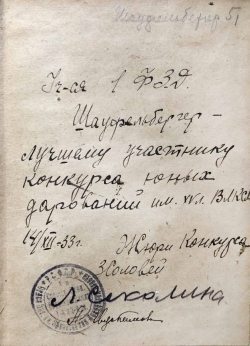 Шауфельбергер 5,
Уч-ся 1 ФЗД.
Шауфельбергер -
Лучшему участнику
конкурса юных
дарований им. XV л. ВЛКСМ
14/XII-33г. Жюри Конкурса
Соловей
Л. Соколина